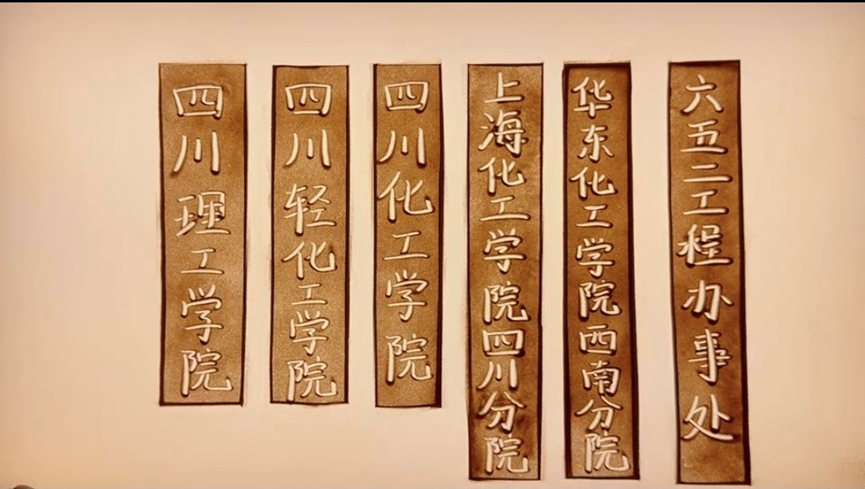 四川理工学院
四川轻化工学院
四川化工学院
上海化工学院四川分院
华东化工学院西南分院
六五二工程办事处